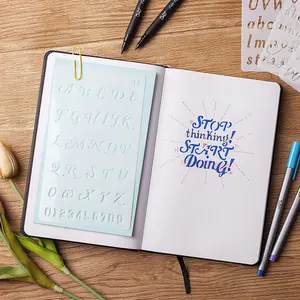 A B C D E
F G H I J K
L M N O P
Q R S T U
V W X Y Z
0123456789
STOP
thinking!
START
Doing!
U V W
a b c d e